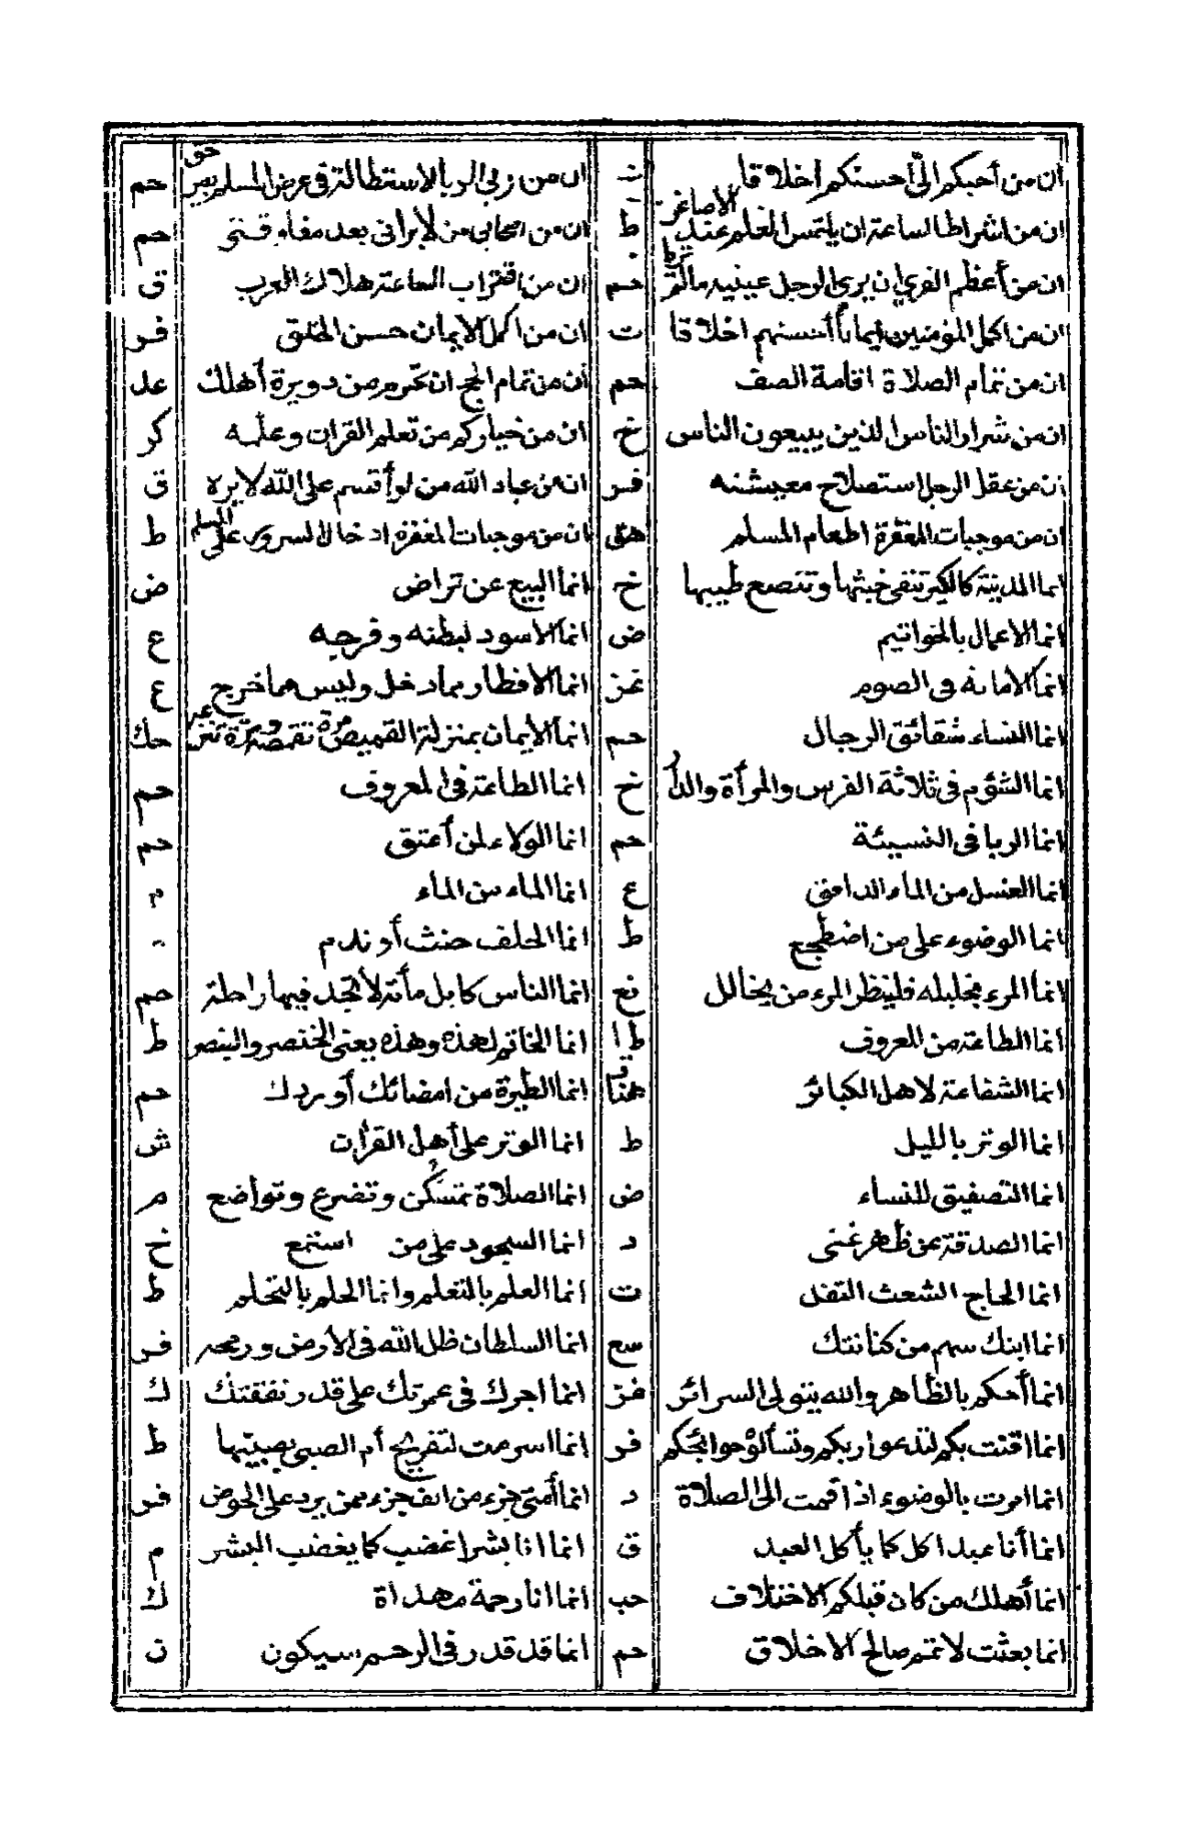 ان من أحبكم الىّ أحسنكم اخلاقا ت ان من اربى الربا الاستطالة فى عرض المسلم بغير حق حم
ان من اشراط الساعة ان يلتمس العلم عند الاصاغر ط ان من اصحابى من لا يرانى بعد مفارقتى حم
ان من أعظم الفرى ان يرى الرجل عينيه مالم تريا حم ان من اقتراب الساعة هلاك العرب ق
ان من اكمل المؤمنين ايمانا أحسنهم اخلاقا ت ان من اكمل الايمان حسن الخلق فر
ان من تمام الصلاة اقامة الصف حم أن من تمام الحج ان تحرم من دويرة أهلك عد
ان من شرار الناس الذين يبيعون الناس خ ان من خياركم من تعلم القران وعلمه كر
ان من عقل الرجل استصلاح معيشته فر ان من عباد الله من لو أقسم على الله لابره ق
ان من موجبات المغفرة اطعام المسلم هق ان من موجبات المغفرة ادخال السرور على المسلم ط
انما المدينة كالكير تنفى خبثها وتنصع طيبها خ انما البيع عن تراض ض
انما الاعمال بالخواتيم ض انما الاسود لبطنه وفرجه ع
انما الامانة فى الصوم انما الافطار مما دخل وليس مما خرج ع
انما النساء شقائق الرجال حم انما الايمان بمنزلة القميص مرة تقمصه ومرة حك
انما الشؤم فى ثلاثة الفرس والمرأة والدار خ انما الطاعة فى المعروف حم
انما الربا فى النسيئة حم انما الولاء لمن أعتق حم
انما الغسل من الماء الدافق ع انما الماء من الماء م
انما الوضوء على من اضطجع ط انما الحلف حنث أو ندم
انما المرء بخليله فلينظر المرء من يخالل انما الناس كابل مائة لا تجد فيها راحلة حم
انما الطاعة من المعروف ط انما الخاتم لهذه وهذه يعنى الخنصر والبنصر ط
انما الشفاعة لاهل الكبائر هنا انما الطيرة من امضائك أو ردك حم
انما الوتر بالليل ط انما الوتر على أهل القرآن ش
انما التصفيق للنساء ض انما الصلاة تمسكن وتضرع وتواضع م
انما الصدقة عن ظهر غنى د انما السجود على من استمع خ
انما الحاج الشعث التفل ت انما العلم بالتعلم وانما الحلم بالتحلم ط
انما ابنك سهم من كنانتك سع انما السلطان ظل الله فى الأرض ورمحه فر
انما أحكم بالظاهر والله يتولى السرائر انما اجرك فى عمرتك على قدر نفقتك ك
انما اقنت بكم لتدعوا ربكم وتسألوه حوائجكم فر انما اسرعت لتفريج أم الصبى بصبيها ط
انما امرت بالوضوء اذا قمت الى الصلاة د انما أنتم جزء من الف جزء ممن يرد على الحوض فر
انما أنا عبد اكل كما يأكل العبد ق انما انا بشر اغضب كما يغضب البشر م
انما أهلك من كان قبلكم الاختلاف حب انما انا رحمة مهداة ك
انما بعثت لاتمم صالح الاخلاق حم انما قد قدر فى الرحم سيكون ن